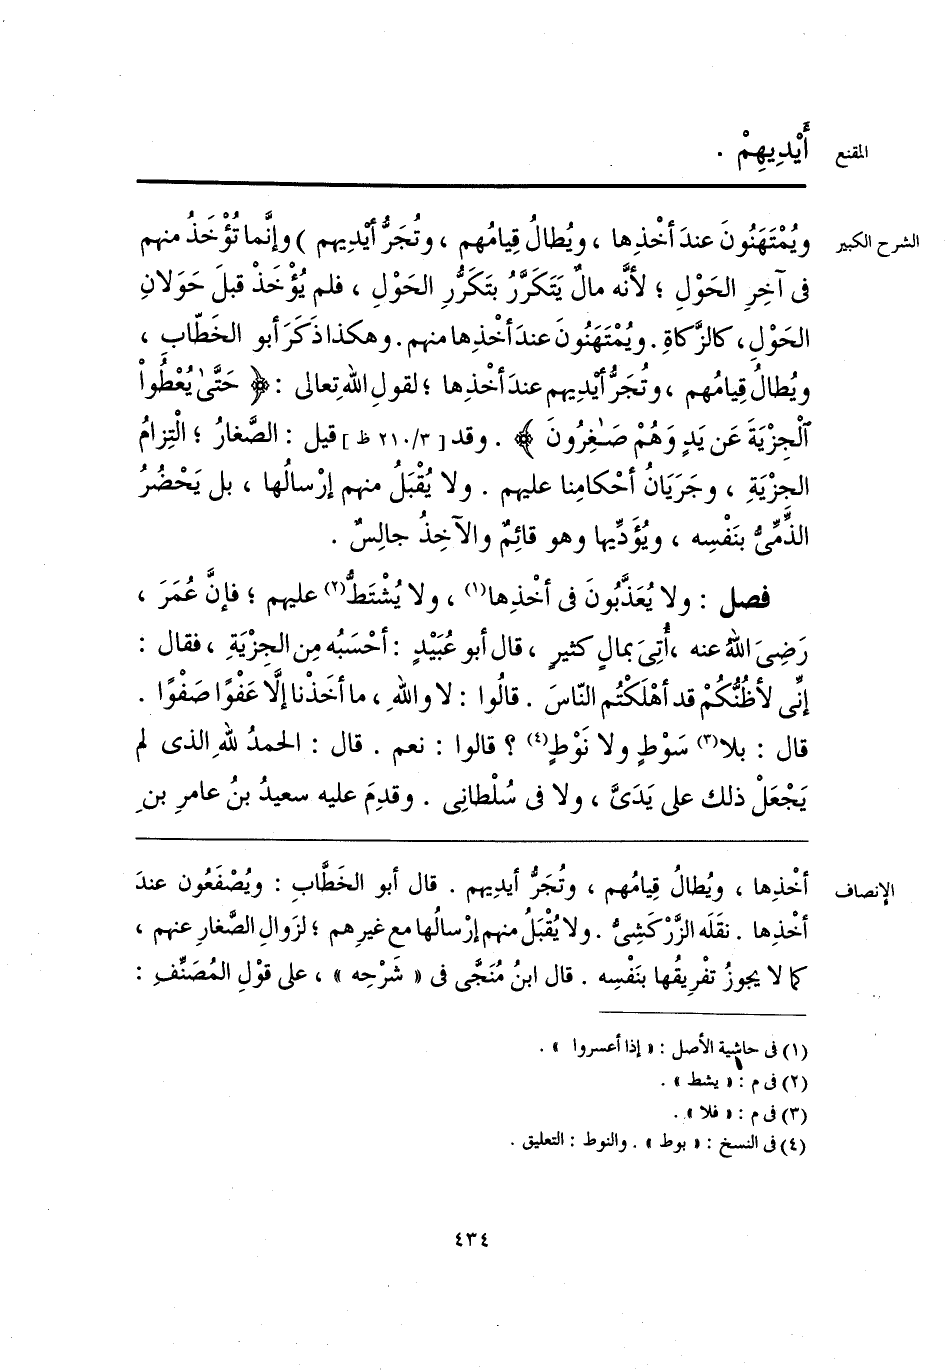 المقنع أَيْدِيهِمْ .
الشرح الكبير ويُمْتَهَنُونَ عندَ أخْذِها ، ويُطالُ قِيامُهم ، وتُجَرُّ أيْدِيهم ) وإنَّما تُؤْخَذُ منهم
فى آخِرِ الحَوْلِ ؛ لأنَّه مالٌ يَتَكَرَّرُ بتَكَرُّرِ الحَوْلِ ، فلم يُؤْخَذْ قبلَ حَوَلانِ
الحَوْلِ ، كالزَّكاةِ . ويُمْتَهَنُونَ عندَ أخْذِها منهم . وهكذا ذَكَرَ أبو الخَطّابِ ،
ويُطالُ قِيامُهم ، وتُجَرُّ أيْدِيهم عندَ أخْذِها ؛ لقولِ اللهِ تعالى : ﴿ حَتَّىٰ يُعْطُواْ
ٱلْجِزْيَةَ عَن يَدٍ وَهُمْ صَٰغِرُونَ ﴾ . وقد [ ٢١٠/٣ ظ ] قيل : الصَّغارُ ؛ الْتِزامُ
الجِزْيَةِ ، وجَرَيَانُ أحْكامِنا عليهم . ولا يُقْبَلُ منهم إرْسالُها ، بل يَحْضُرُ
الذِّمِّىُّ بنَفْسِه ، ويُؤَدِّيها وهو قائِمٌ والآخِذُ جالِسٌ .
فصل : ولا يُعَذَّبُونَ فى أخْذِها(١) ، ولا يُشْتَطُّ(٢) عليهم ؛ فإنَّ عُمَرَ ،
رَضِىَ اللهُ عنه ، أُتِىَ بمالٍ كثيرٍ ، قال أبو عُبَيْدٍ : أحْسَبُه مِن الجِزْيَةِ ، فقال :
إنِّى لأظُنُّكُمْ قد أهْلَكْتُم النّاسَ . قالُوا : لا واللهِ ، ما أخَذْنا إلَّا عَفْوًا صَفْوًا .
قال : بلا(٣) سَوْطٍ ولا نَوْطٍ(٤) ؟ قالوا : نعم . قال : الحمدُ للهِ الذى لم
يَجْعَلْ ذلك على يَدَىَّ ، ولا فى سُلْطانِى . وقدِمَ عليه سعيدُ بنُ عامرِ بنِ
الإنصاف أخْذِها ، ويُطالُ قِيامُهم ، وتُجَرُّ أيديهم . قال أبو الخَطَّاب : ويُصْفَعُون عندَ
أخْذِها . نقَلَه الزَّرْكَشِىُّ . ولا يُقْبَلُ منهم إرْسالُها مع غيرِهم ؛ لزَوالِ الصَّغارِ عنهم ،
كما لا يجوزُ تفْرِيقُها بنَفْسِه . قال ابنُ مُنَجَّى فى « شَرْحِه » ، على قوْلِ المُصَنِّفِ :
(١) فى حاشية الأصل : « إذا أعسروا » .
(٢) فى م : « يشط » .
(٣) فى م : « فلا » .
(٤) فى النسخ : « بوط » . والنوط : التعليق .
٤٣٤